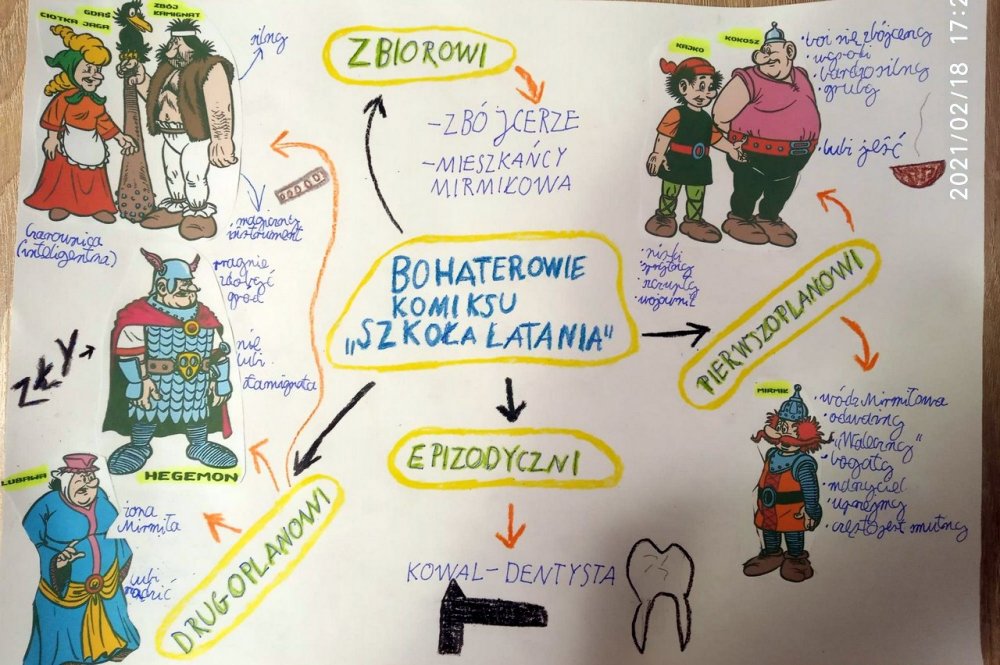 CIOTKA JAGA
GDAŚ
ZBÓJ
KAMIGNAT
silny
magiczny
instrument
czarownica
(inteligentna)
ZBIOROWI
-ZBÓJCERZE
-MIESZKAŃCY
MIRMIKOWA
KAJKO
KOKOSZ
• boi się zbójcerzy
• bardzo silny
• gruby
• lubi jeść
2021/02/18 17:2
niski
• wojownik
BOHATEROWIE
KOMIKSU
„SZKOŁA ŁATANIA"
PIERWSZOPLANOWI
pragnie
zdobyć
gród
nie
lubi
Łamignata
ZŁY
HEGEMON
MIRMIK
• wódz Mirmiłowa
• odważny
• „Waleczny"
• bogaty
• marzyciel
• uprzejmy
• często jest smutny
EPIZODYCZNI
KOWAL-DENTYSTA
DRUGOPLANOWI
LUBAWA
żona
Mirmiła
lubi
rządzić